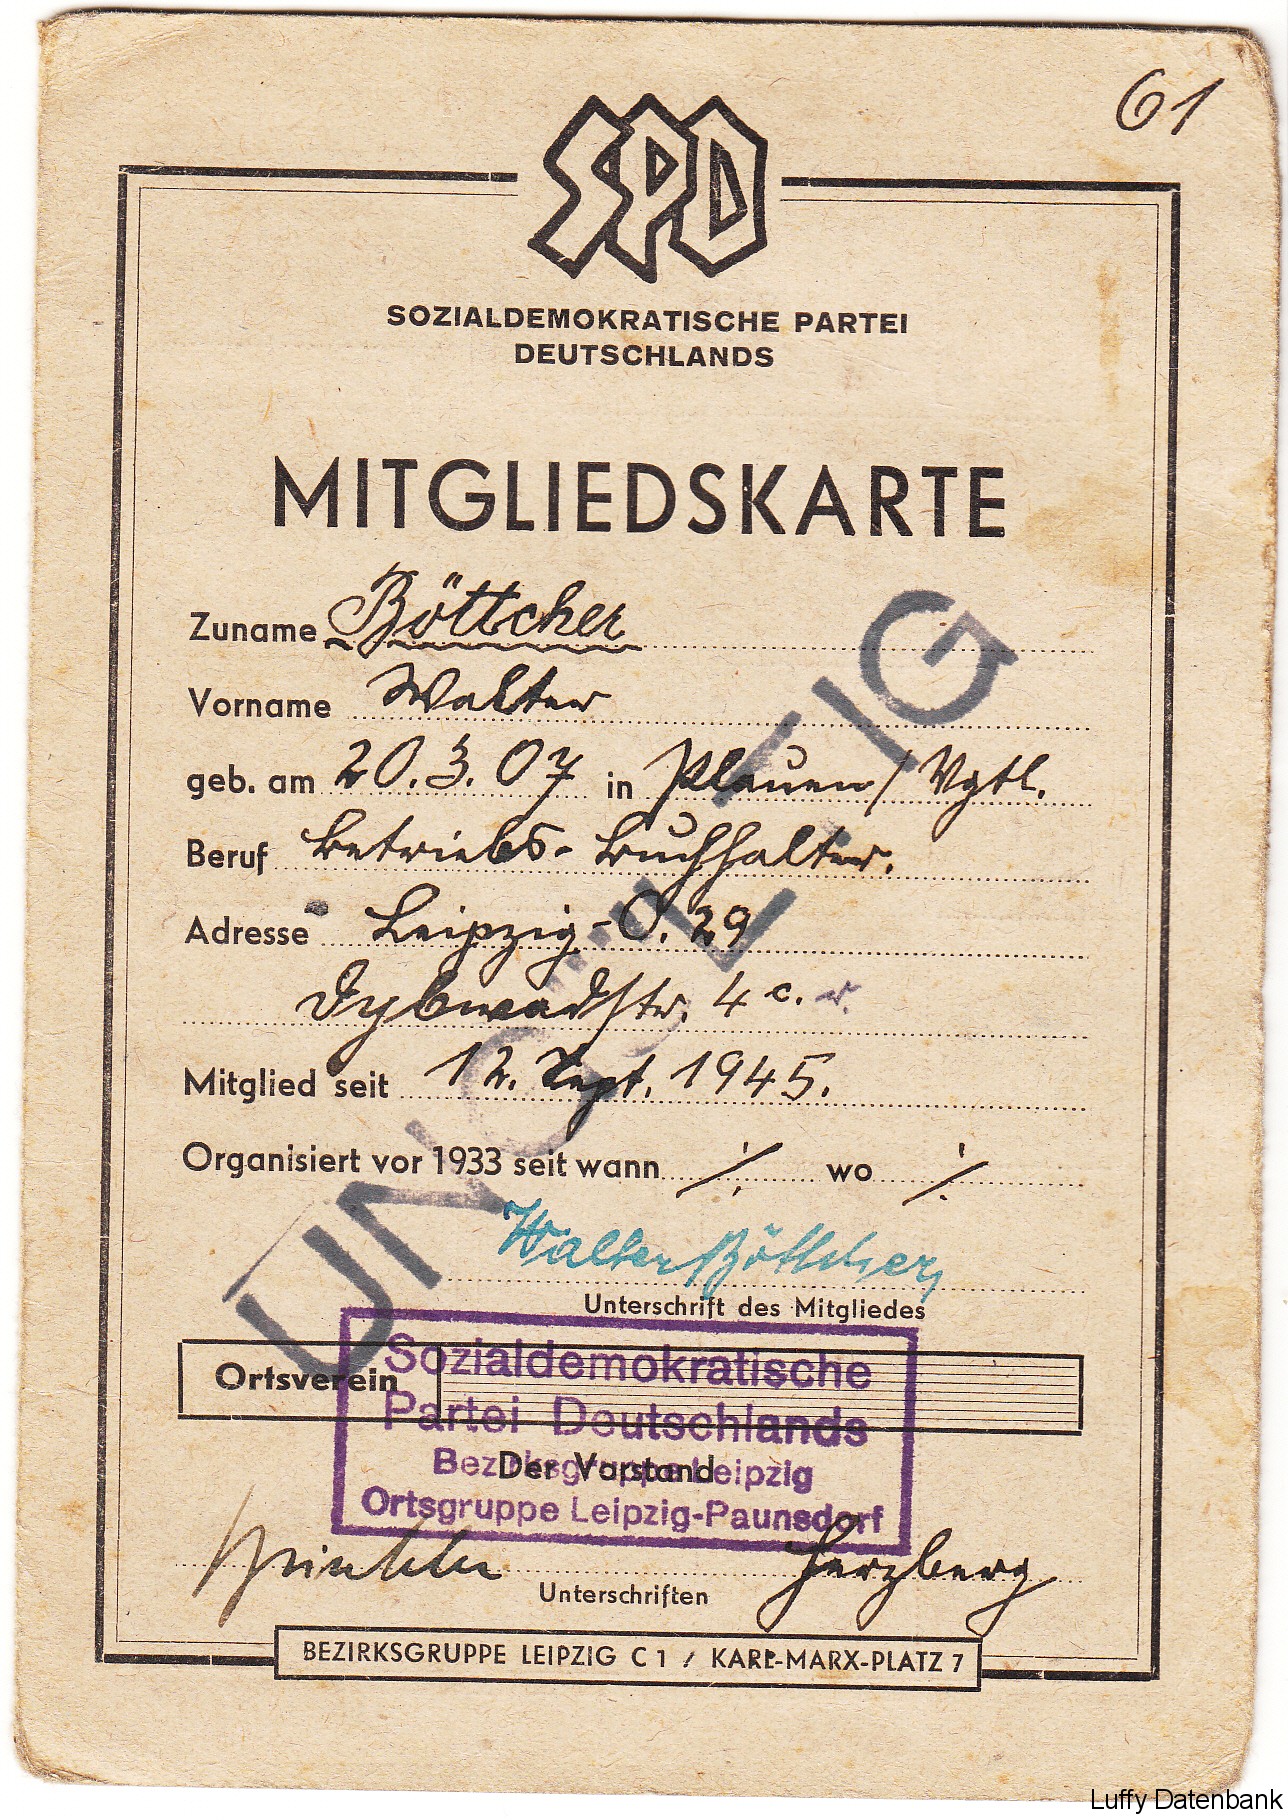 61
SPD
SOZIALDEMOKRATISCHE PARTEI
DEUTSCHLANDS
MITGLIEDSKARTE
Zuname Böttcher
Vorname Walter
geb. am 20.3.07 in Plauen/Vgtl.
Beruf Betriebs-Buchhalter.
Adresse Leipzig-O. 29
Dybwadstr. 4 c. r.
Mitglied seit 12. Sept. 1945.
Organisiert vor 1933 seit wann ./. wo ./.
Walter Böttcher,
Unterschrift des Mitgliedes
UNGÜLTIG
Ortsverein
Sozialdemokratische
Partei Deutschlands
Bezirksgruppe Leipzig
Ortsgruppe Leipzig-Paunsdorf
Der Vorstand
Herzberg
Unterschriften
BEZIRKSGRUPPE LEIPZIG C 1 / KARL-MARX-PLATZ 7
Luffy Datenbank